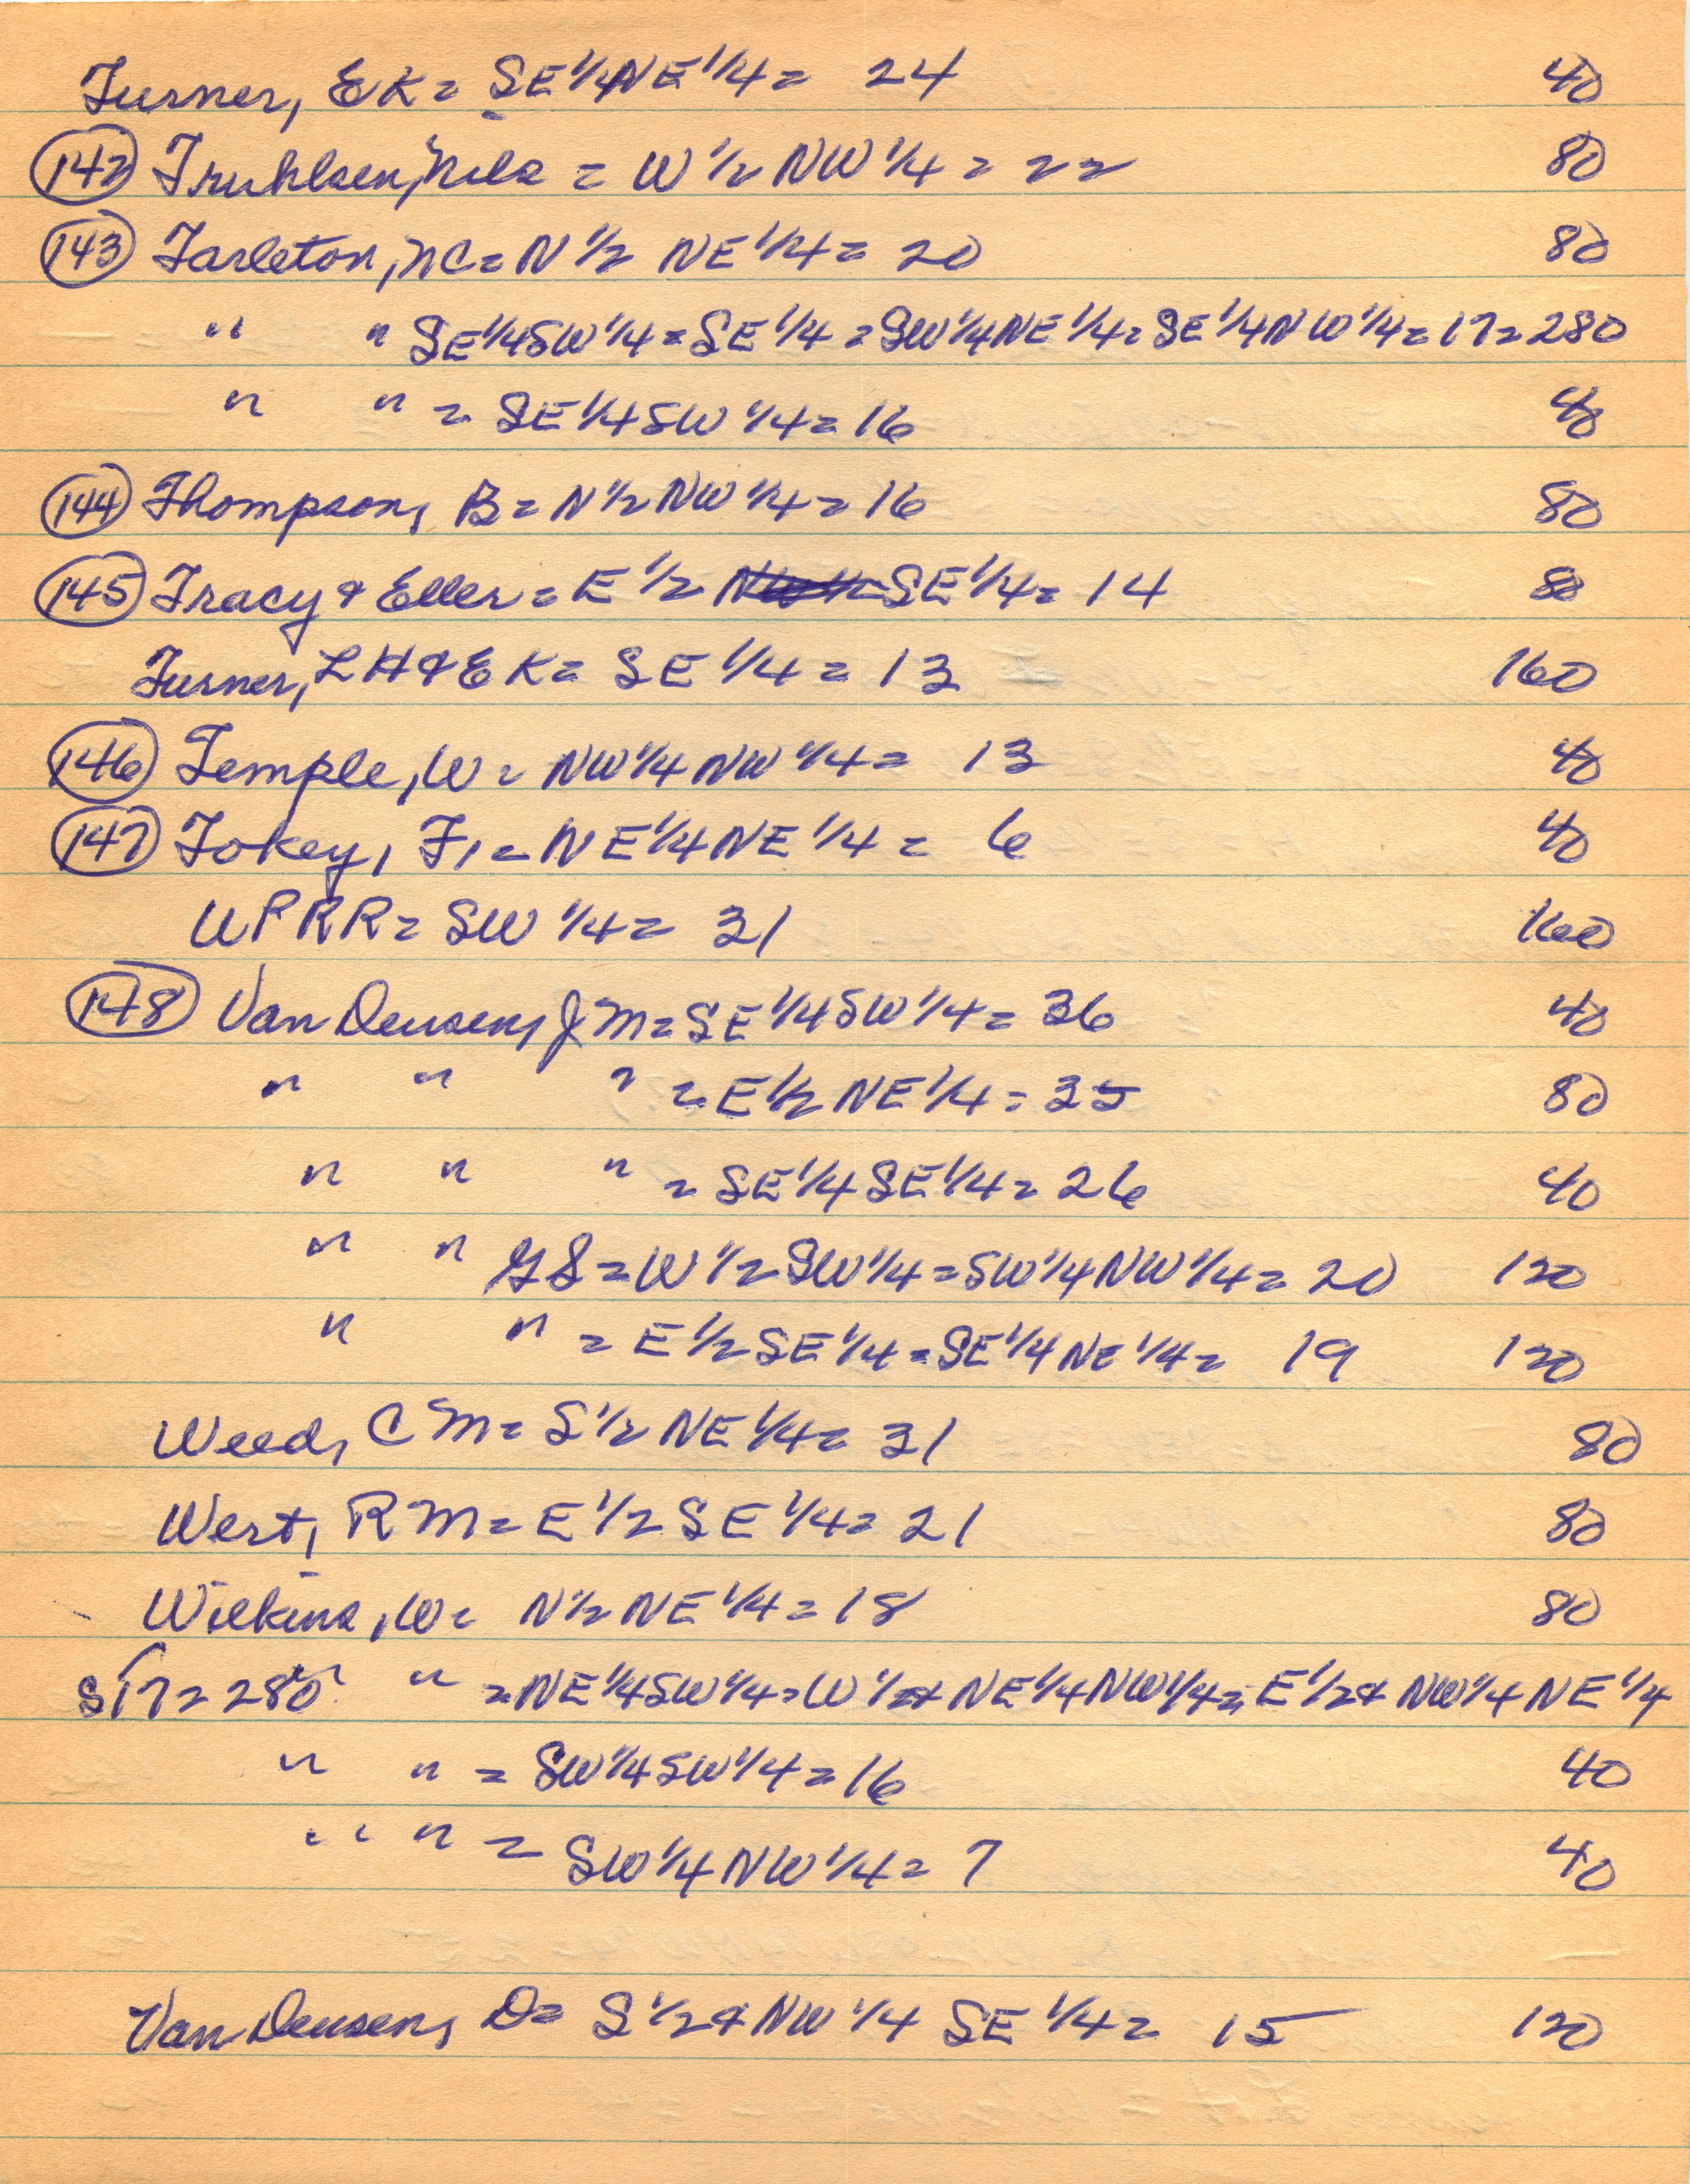 Turner, EK = SE 1/4 NE 1/4 = 24 40
142 Truhlsen, Nels = W 1/2 NW 1/4 = 22 80
143 Tarleton, NC = N 1/2 NE 1/4 = 20 80
" " SE 1/4 SW 1/4 = SE 1/4 = SW 1/4 NE 1/4 = SE 1/4 NW 1/4 = 17 = 280
" " = SE 1/4 SW 1/4 = 16 40
144 Thompson, B = N 1/2 NW 1/4 = 16 80
145 Tracy & Eller = E 1/2 SE 1/4 = 14 80
Turner, LH & EK = SE 1/4 = 13 160
146 Temple, W = NW 1/4 NW 1/4 = 13 40
147 Tokey, F, = NE 1/4 NE 1/4 = 6 40
UPRR = SW 1/4 = 31 160
148 Van Deusen, J M = SE 1/4 SW 1/4 = 36 40
" " " = E 1/2 NE 1/4 = 35 80
" " " = SE 1/4 SE 1/4 = 26 40
" " GS = W 1/2 SW 1/4 = SW 1/4 NW 1/4 = 20 120
" " = E 1/2 SE 1/4 = SE 1/4 NE 1/4 = 19 120
Weed, C M = S 1/2 NE 1/4 = 31 80
West, R M = E 1/2 SE 1/4 = 21 80
Wilkins, W = N 1/2 NE 1/4 = 18 80
S17 = 280 " = NE 1/4 SW 1/4 = W 1/2 & NE 1/4 NW 1/4 = E 1/2 & NW 1/4 NE 1/4
" " = SW 1/4 SW 1/4 = 16 40
" " = SW 1/4 NW 1/4 = 7 40
Van Deusen, D = S 1/2 & NW 1/4 SE 1/4 = 15 120